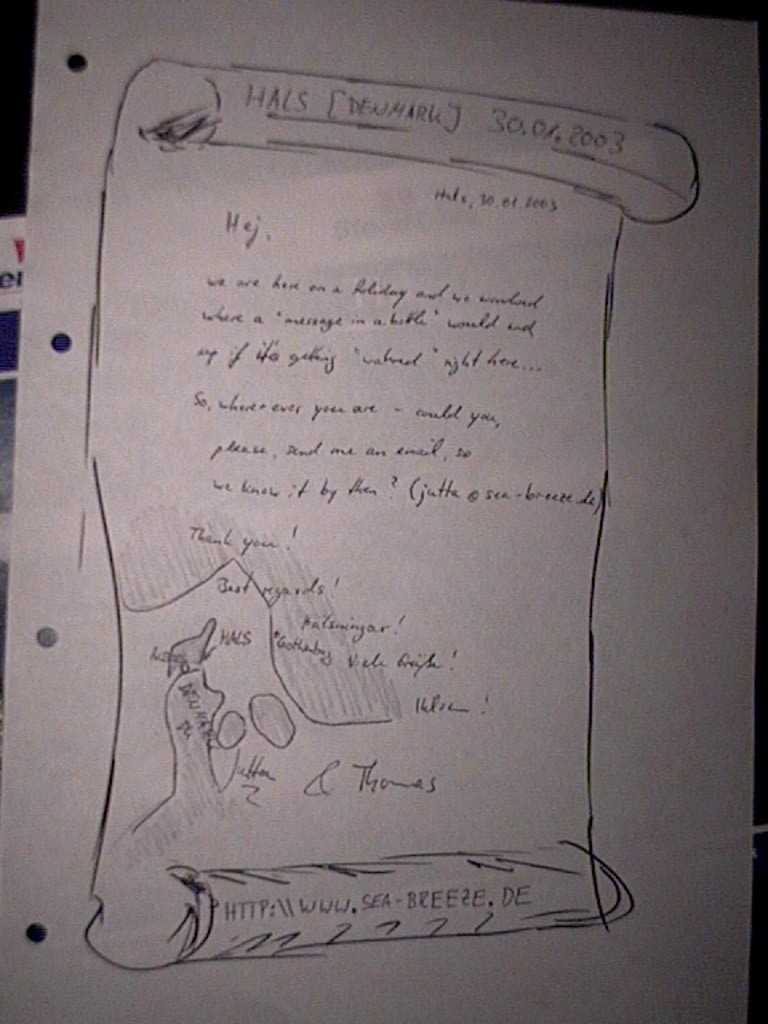 HALS [DENMARK] 30.01.2003
Hals, 30.01.2003
Hej,
we are here on a holiday and we wondered
where a "message in a bottle" would end
up if it's getting "watered" right here...
So, where ever you are - could you,
please, send me an email, so
we know it by then? (jutta@sea-breeze.de)
Thank you!
Best regards!
Hälsningar!
HALS
Gothenburg
Viele Grüße!
DENMARK
Hilsen!
Jutta & Thomas
HTTP:\\WWW.SEA-BREEZE.DE